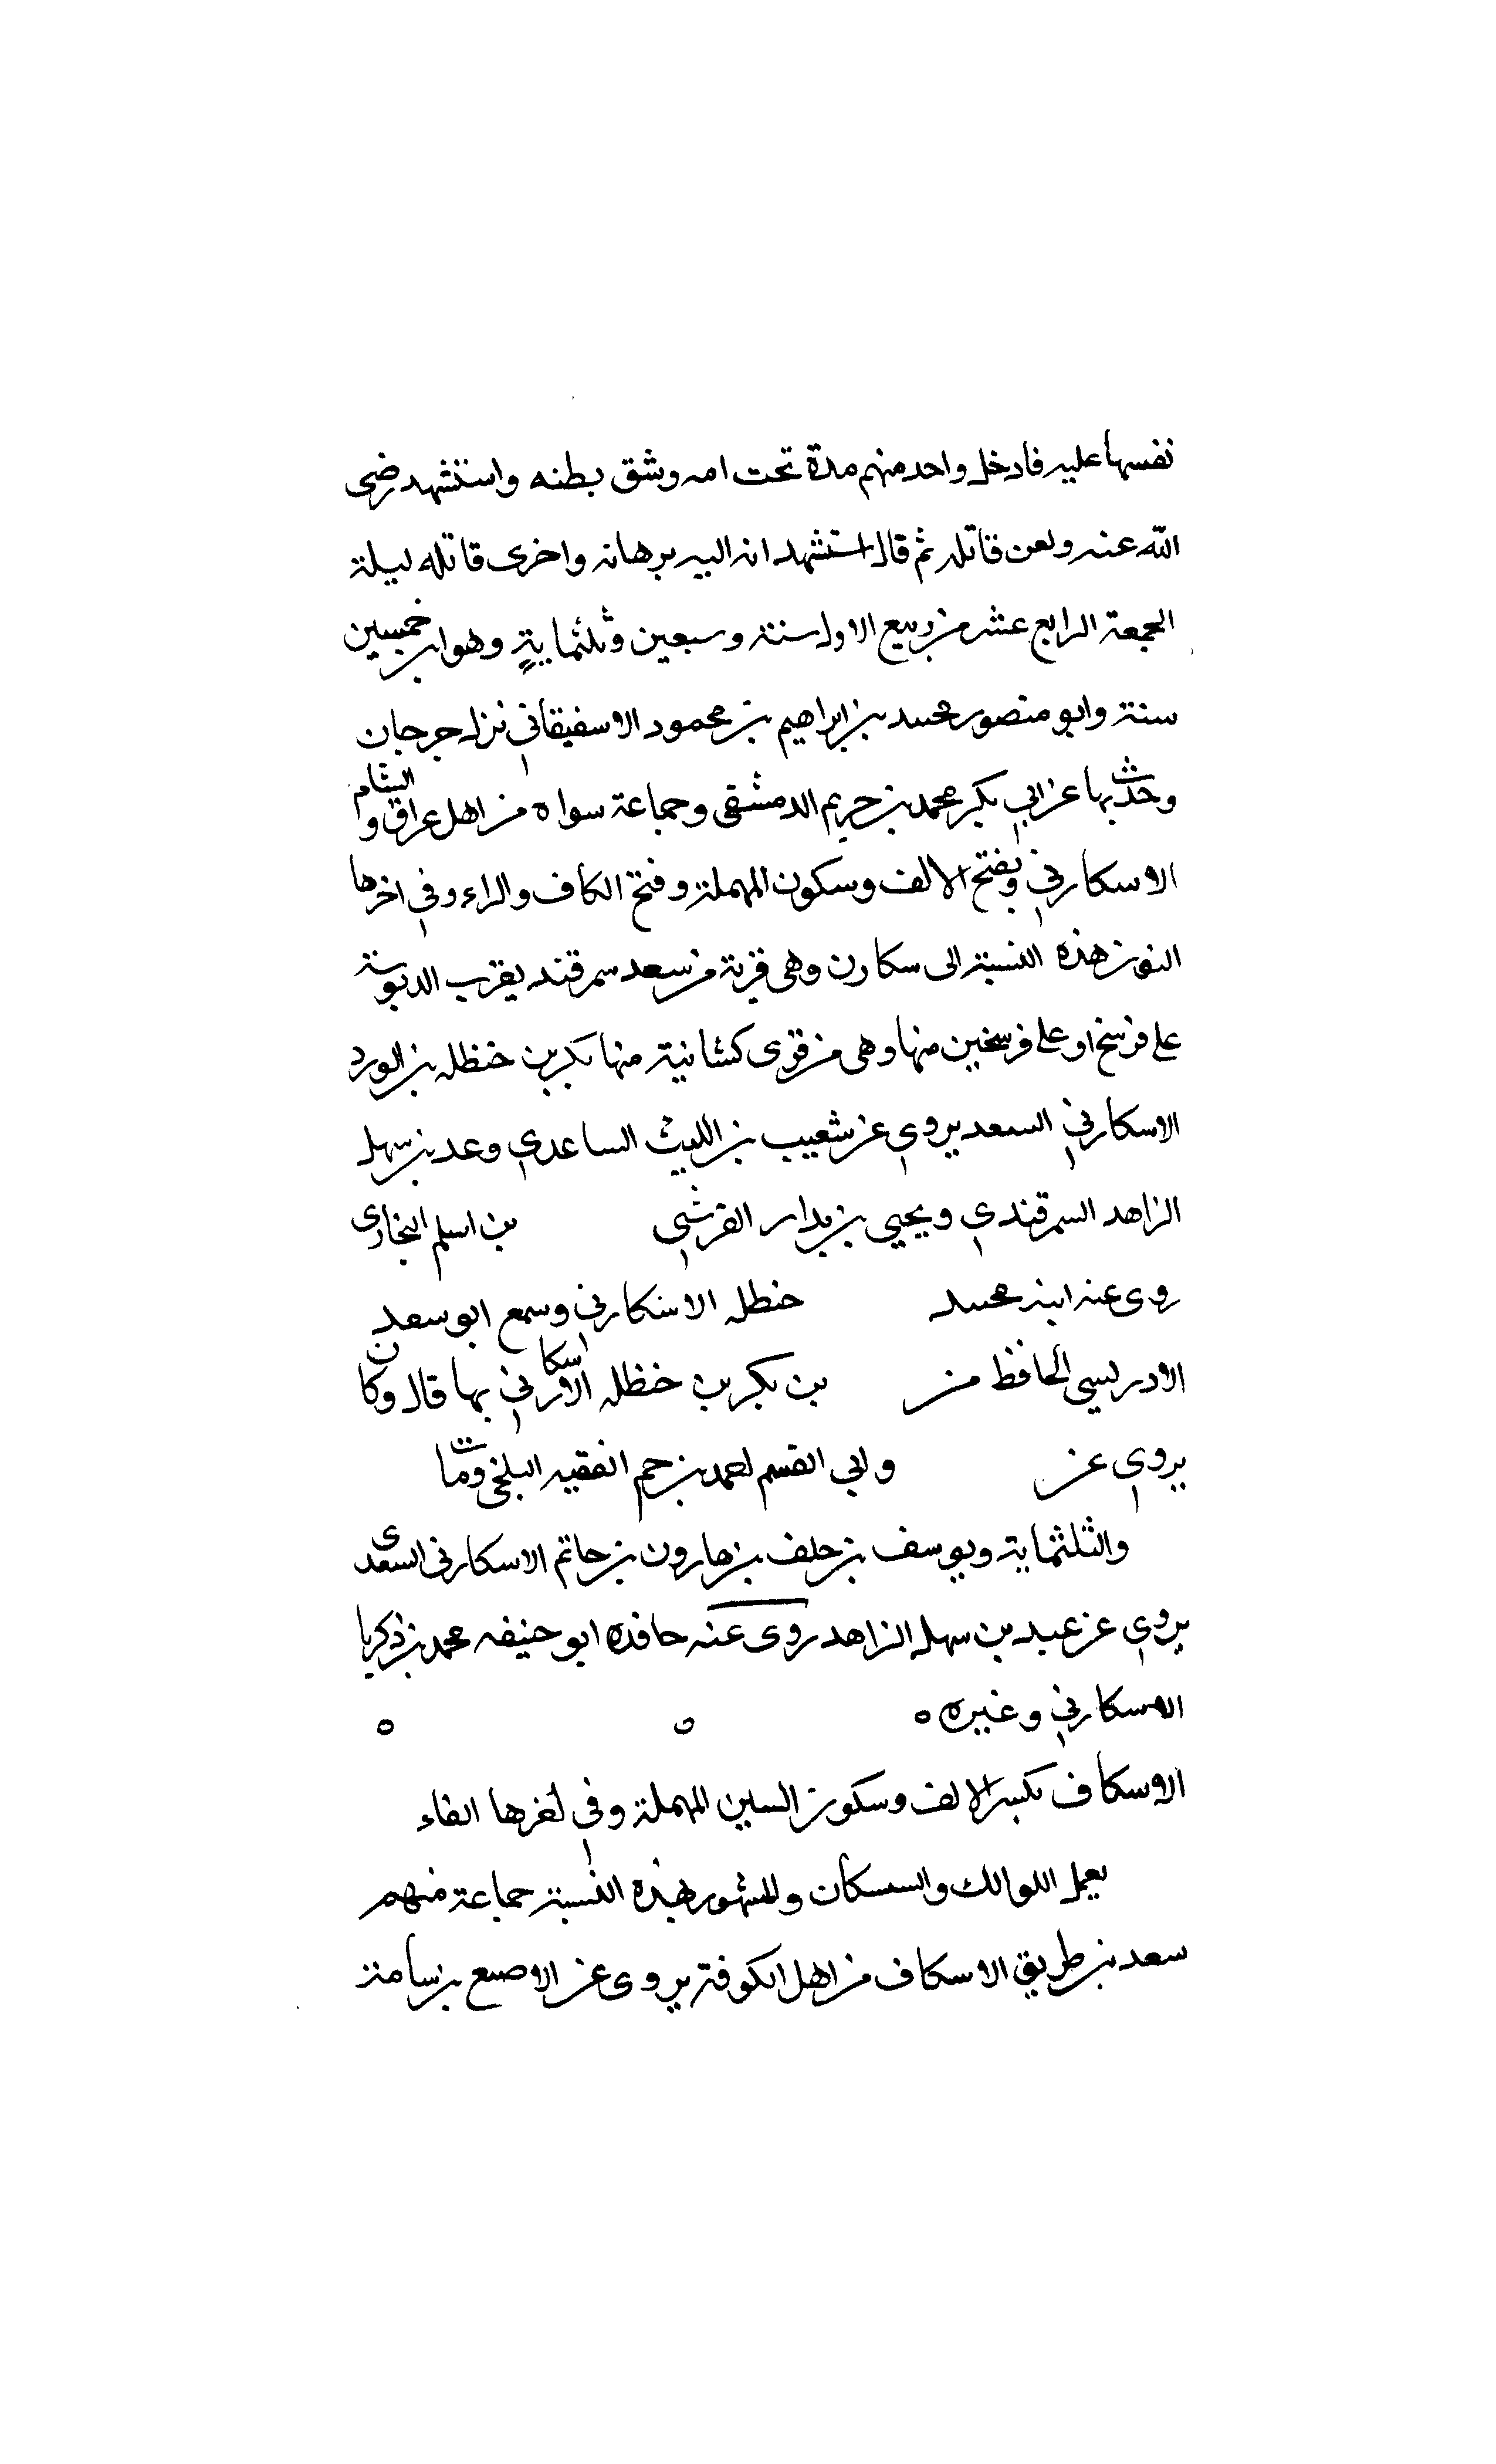 نفسها عليه فادخل واحد منهم مدة تحت امه وشق بطنه واستشهد رضى
الله عنه ولعن قاتله ثم قال استشهد انه اليه برهانه واخرى قاتله ليلة
الجمعة الرابع عشر من ربيع الاول سنة وسبعين وثلثماية وهو ابن خمسين
سنة وابو منصور محمد بن ابراهيم بن محمود الاسفيقاني نزل جرجان
وحدث بها عن ابي بكر محمد بن حريم الدمشقى وجماعة سواه من اهل عراق والشام
الاسكارني وبفتح الالف وسكون المهملة وفتح الكاف والراء وفي اخرها
النون هذه النسبة الى سكارن وهى قرية من سعد سمرقند بقرب الدبوسة
على فرسخ او على فرسخين منها وهى من قرى كشانية منها بكر بن حنظله بن الورد
الاسكارني السعد يروي عن شعيب بن الليث الساعدي وعد بن سهل
الزاهد السمرقندي ويحيى بن بدار القرشي بن اسلم البخارى
روى عنه ابنه محمد حنظله الاسكارني وسمع ابو سعد
الادريسي الحافظ من بن بكر بن حنظله الاسكارني بها قال وكان
يروي عن وابي القسم احمد بن حم الفقيه البلخى ومات
والثلثماية ويوسف بن خلف بن هارون بن حاتم الاسكارنى السعدى
يروي عن عبد بن سهل الزاهد روى عنه حافده ابو حنيفه محمد بن زكريا
الاسكارني وغيره ه ه ه
الاسكاف بكسر الالف وسكون السين المهملة وفي اخرها الفاء
يعمل اللوالك والسسكان والمشهور بهذه النسبة جماعة منهم
سعد بن طريق الاسكاف من اهل الكوفة يروى عن الاصبع بن سامنة